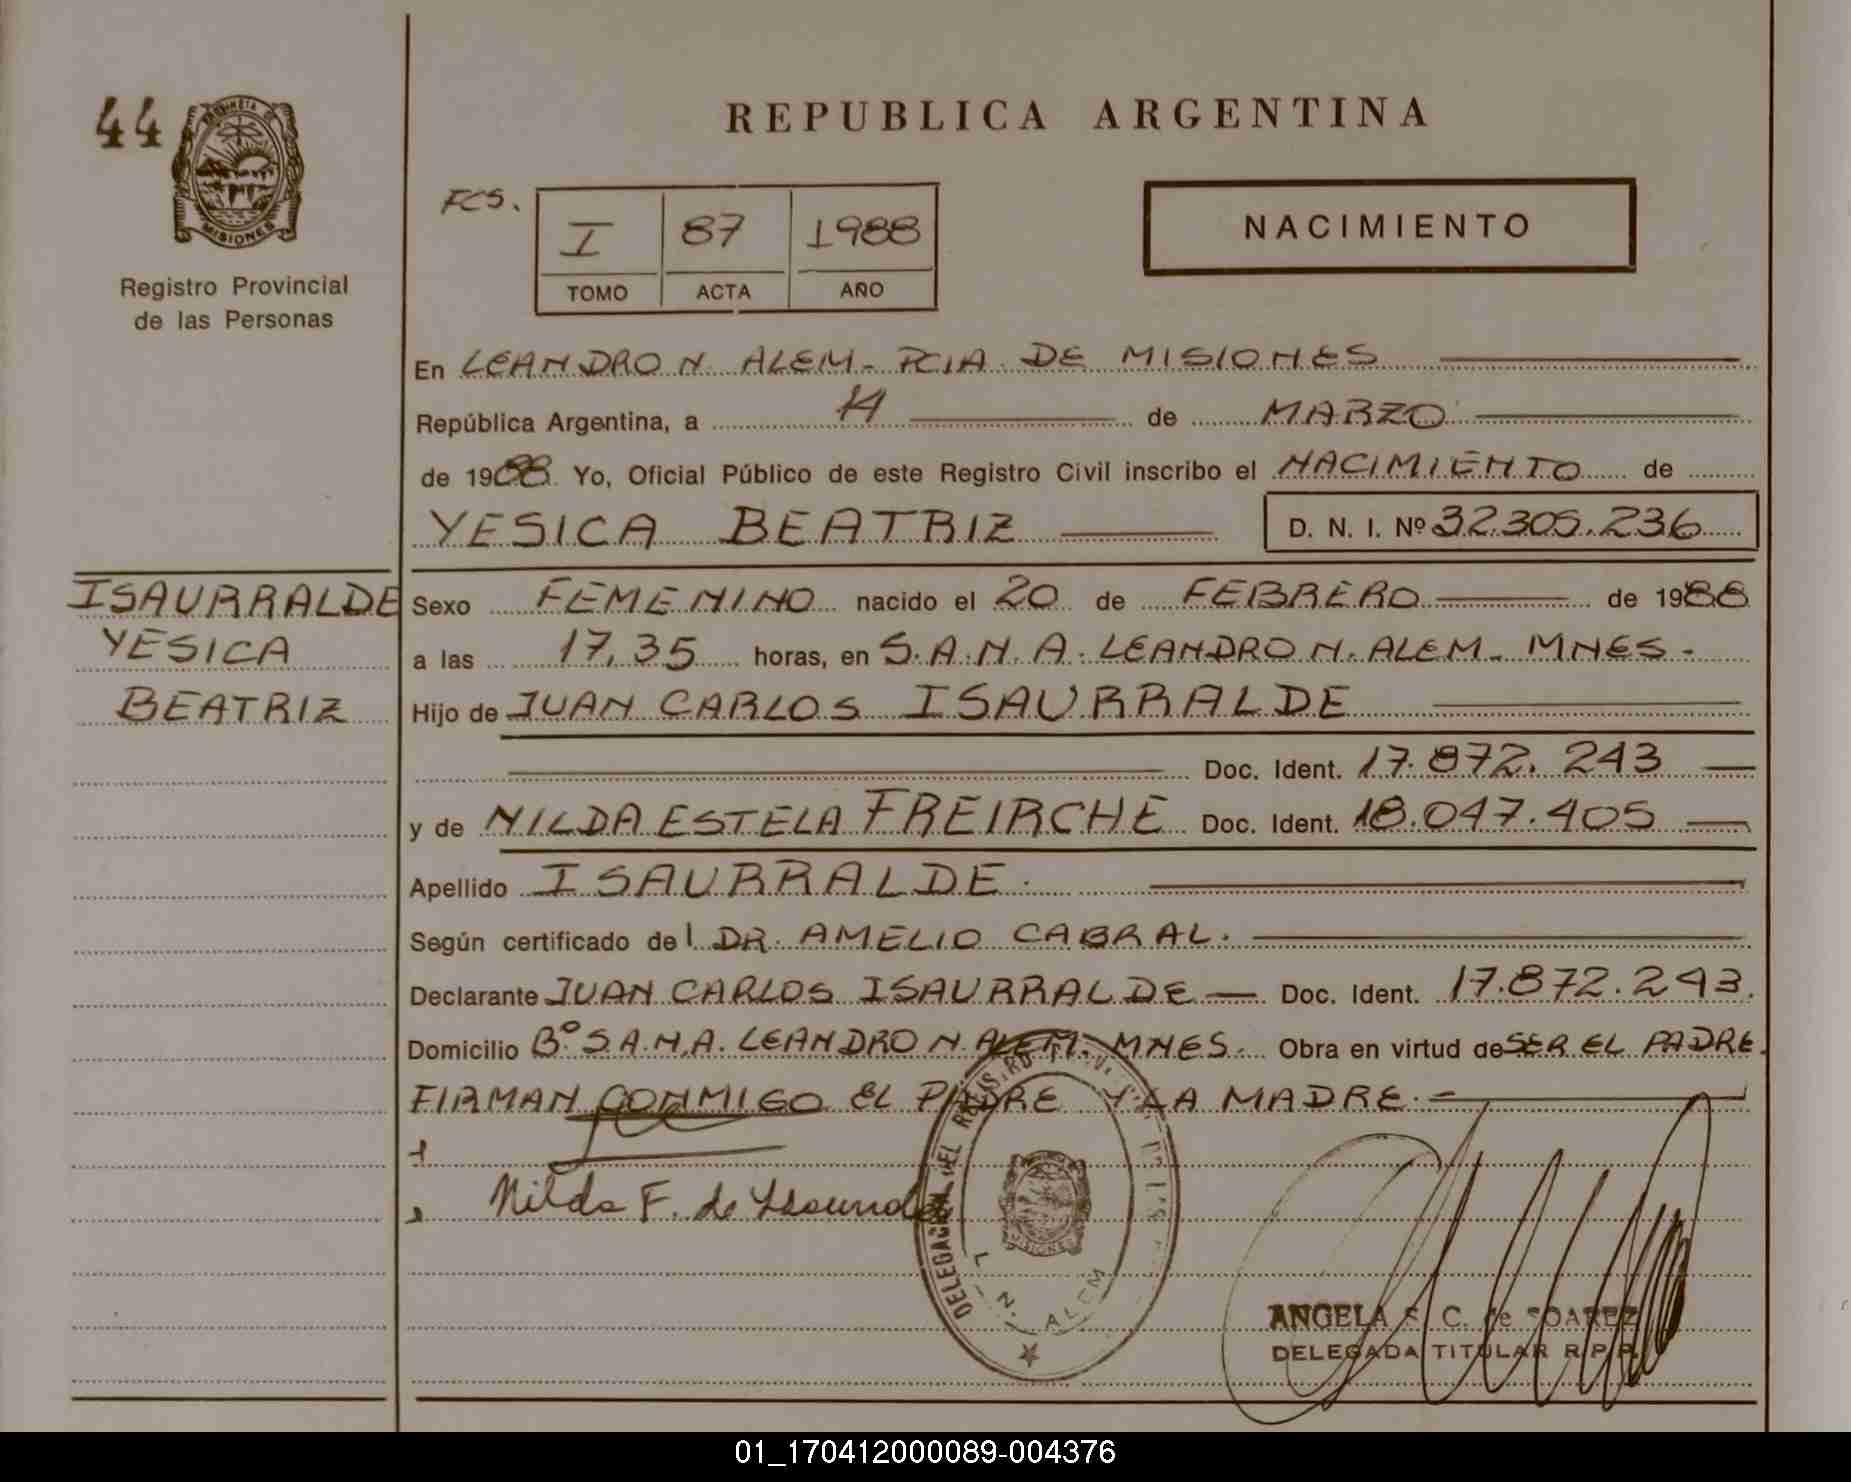 44
REPUBLICA ARGENTINA
FCS.
I 87 1988
TOMO ACTA AÑO
NACIMIENTO
MISIONES
Registro Provincial
de las Personas
En LEANDRO N. ALEM - PCIA. DE MISIONES
República Argentina, a 14 de MARZO
de 1988 Yo, Oficial Público de este Registro Civil inscribo el NACIMIENTO de
YESICA BEATRIZ D. N. I. Nº 32.305.236
ISAURRALDE
YESICA
BEATRIZ
Sexo FEMENINO nacido el 20 de FEBRERO de 1988
a las 17,35 horas, en S.A.N.A. LEANDRO N. ALEM - MNES -
Hijo de JUAN CARLOS ISAURRALDE
Doc. Ident. 17.872.243
y de NILDA ESTELA FREIRCHE Doc. Ident. 18.047.405
Apellido ISAURRALDE.
Según certificado del DR. AMELIO CABRAL.
Declarante JUAN CARLOS ISAURRALDE - Doc. Ident. 17.872.243.
Domicilio Bº S.A.N.A. LEANDRO N. ALEM. MNES. Obra en virtud de SER EL PADRE.
FIRMAN CONMIGO EL PADRE Y LA MADRE. -
Nilda F. de
DELEGACION DEL REGISTRO
MISIONES
L. N. ALEM
ANGELA S. C. de SOAREZ
DELEGADA TITULAR R.P.P.
01_170412000089-004376